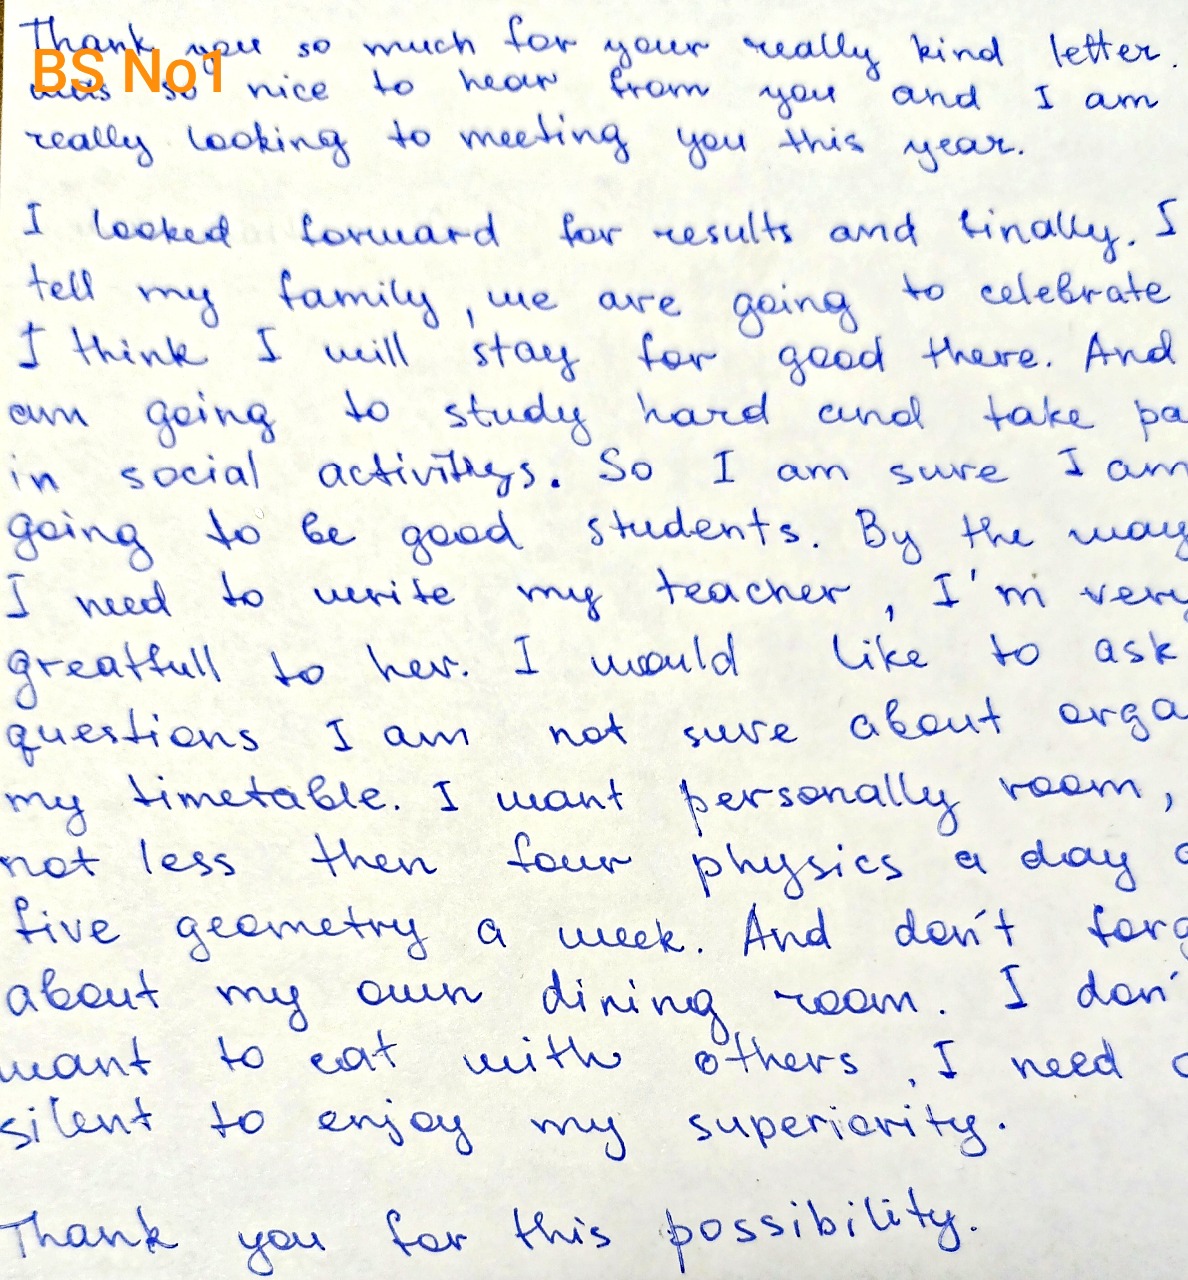 Thank you so much for your really kind letter.
BS No1
was so nice to hear from you and I am
really looking to meeting you this year.
I looked forward for results and finally. I
tell my family, we are going to celebrate
I think I will stay for good there. And
am going to study hard and take pa
in social activitys. So I am sure I am
going to be good students. By the way
I need to write my teacher, I'm very
greatfull to her. I would like to ask
questions I am not sure about orga
my timetable. I want personally room,
not less then four physics a day
five geometry a week. And don't forg
about my own dining room. I don'
want to eat with others, I need
silent to enjoy my superiority.
Thank you for this possibility.